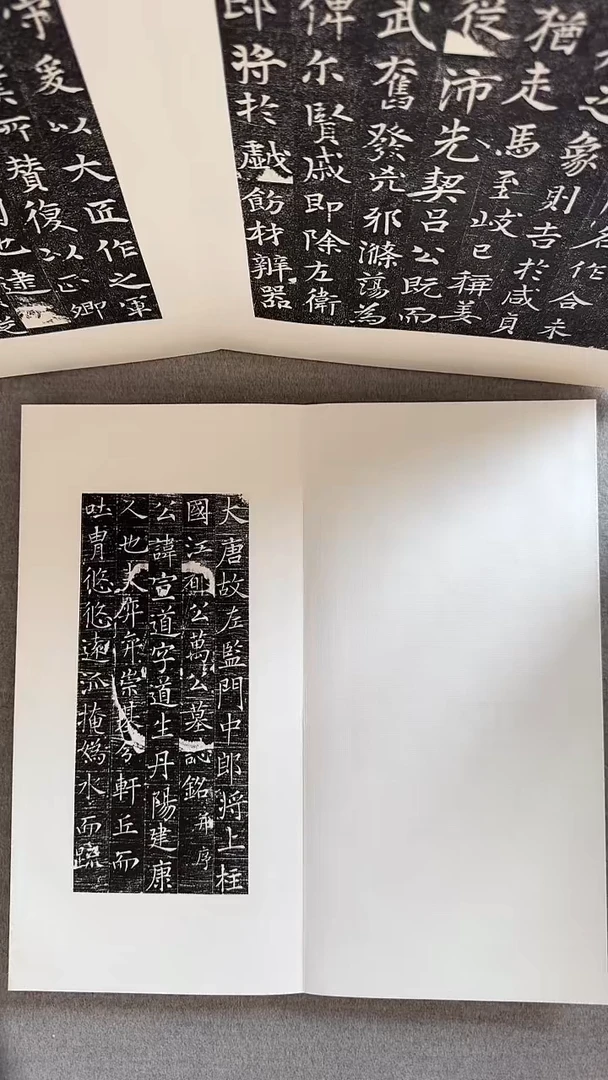 名作合未
之象則吉於咸貞
猶走馬至岐已稱姜
從沛先契呂公既而
武奮發兇邪滌蕩為
俾尔賢戚即除左衛
郎將於戲飭材辨器
守爰以大匠作之軍
所贊復以正卿
也建
大唐故左監門中郎將上柱
國江公萬公墓誌銘并序
公諱宣道字道生丹陽建康
人也夫崇基分軒丘而
吐胄悠悠遠派掩媯水而疏